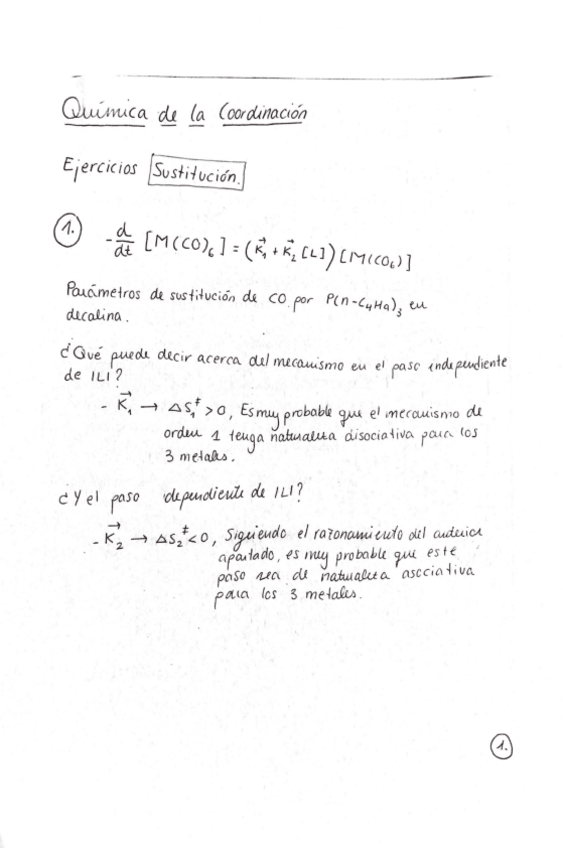 Química de la Coordinación
Ejercicios Sustitución.
1. -d/dt [M(CO)₆] = (K⃗₁ + K⃗₂ [L]) [M(CO₆)]
Parámetros de sustitución de CO por P(n-C₄H₉)₃ en
decalina.
¿Qué puede decir acerca del mecanismo en el paso independiente
de |L|?
- K⃗₁ → ΔS₁‡ > 0, Es muy probable que el mecanismo de
orden 1 tenga naturaleza disociativa para los
3 metales.
¿Y el paso dependiente de |L|?
- K⃗₂ → ΔS₂‡ < 0, Siguiendo el razonamiento del anterior
apartado, es muy probable que este
paso sea de naturaleza asociativa
para los 3 metales.
1.